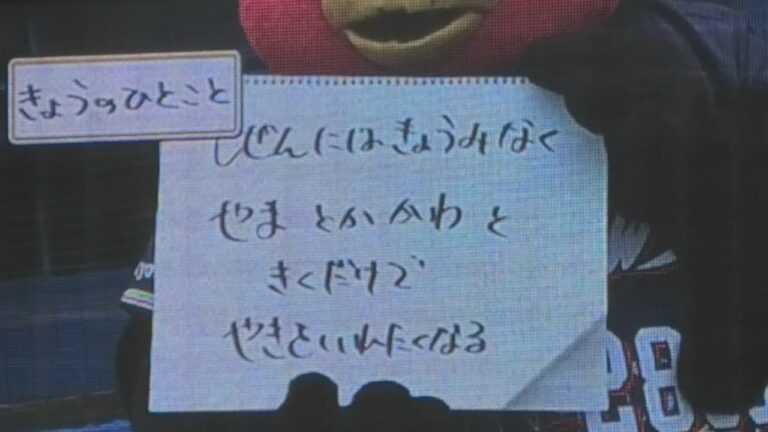 きょうのひとこと
しぜんにはきょうみなく
やまとかかわと
きくだけで
やきといれたくなる
28